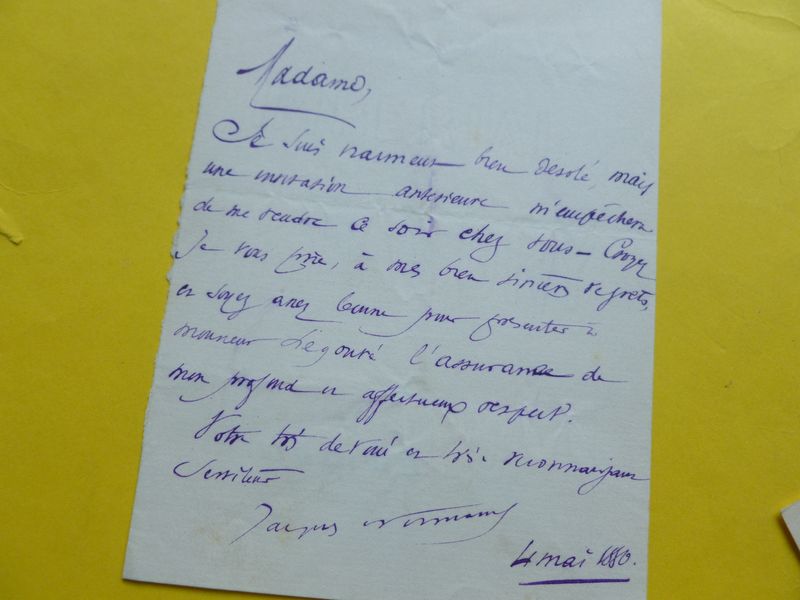 Madame,
Je suis vraiment bien désolé, mais
une invitation antérieure m'empêchera
de me rendre ce soir chez vous - Croyez
Je vous prie, à mes bien sincères regrets,
et soyez assez bonne pour présenter à
monsieur Légouvé l'assurance de
mon profond et affectueux respect.
Votre très dévoué et très reconnaissant
Serviteur
Jacques Normand
4 mai 1880.